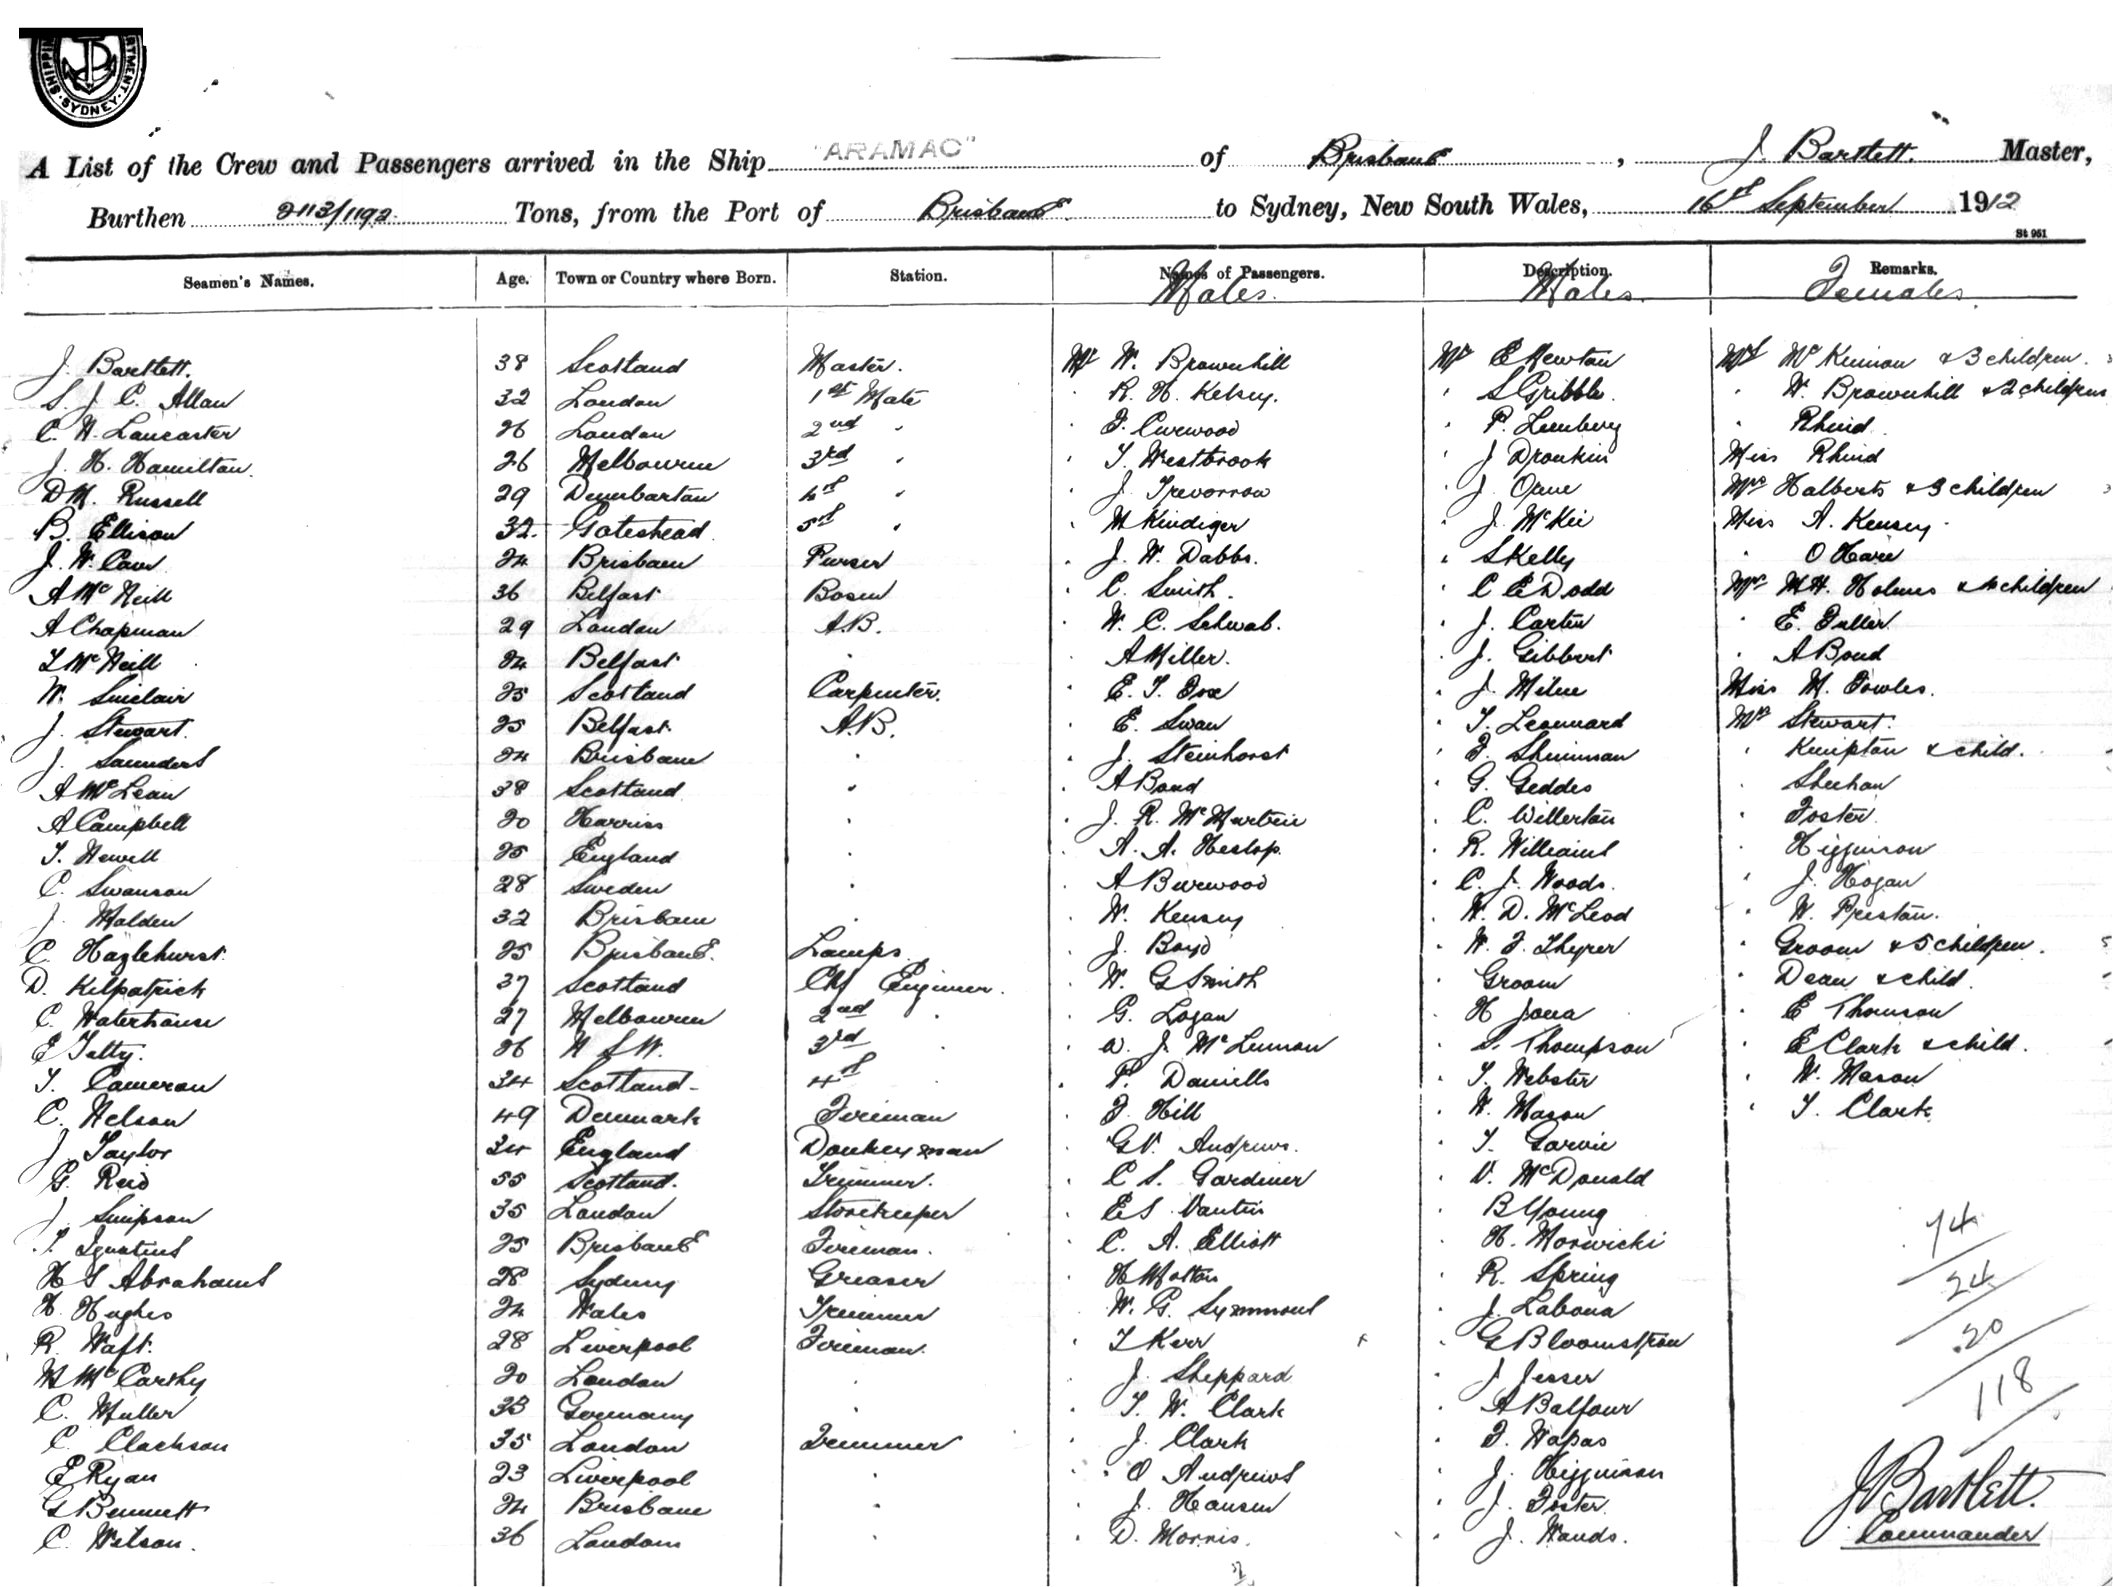 SHIPPING DEPARTMENT · SYDNEY ·
A List of the Crew and Passengers arrived in the Ship "ARAMAC" of Brisbane, J. Bartlett. Master,
Burthen 2113/1192 Tons, from the Port of Brisbane to Sydney, New South Wales, 16th September 1912
St 961
Seamen's Names. Age. Town or Country where Born. Station. Names of Passengers. Description. Remarks.
Males. Males. Females.
J. Bartlett. 38 Scotland Master. Mr W. Brownhill Mr E Newton Mrs McKinnon & 3 children.
S. J. C. Allan 32 London 1st Mate " R. H. Kelsey. " S Gribble. " W. Brownhill & 2 children
C. H. Lancaster 26 London 2nd " " F. Curwood " P. Lumberg " Rhind
J. H. Hamilton. 26 Melbourne 3rd " " T. Westbrook " J Dronkin Miss Rhind
D M. Russell 29 Dumbarton 4th " " J. Trevorrow " J. Opie Mrs Halberts & 3 children
B. Ellison 32 Gateshead 5th " " M Kindiger " J. McKie Miss A. Kensey.
J. W. Cam 24 Brisbane Purser " J. W. Dabbs. " S Kelly " O Hare
A McNeill 36 Belfast Bosun " C. Smith. " C E Dodd Mrs M H. Holmes & 4 children
A Chapman 29 London A.B. " W. C. Schwab. " J. Carter " E. Fuller
T McNeill 24 Belfast " " A Miller. " J. Gibbert " A Bond
W. Sinclair 25 Scotland Carpenter. " E. T. Fox " J. Milne Miss M. Fowles.
J. Stewart. 25 Belfast A.B. " E. Swan " T. Leonnard Mrs Stewart.
J. Saunders 24 Brisbane " " J. Steinhorst " F. Shinman " Kimpton & child.
A McLean 38 Scotland " " A Bond " G. Geddes " Sheehan
A Campbell 20 Harriss " " J. R. McMartin " C. Willerton " Foster
T. Newell 25 England " " A. A. Heslop. " R. Williams " Higginson
C. Swanson 28 Sweden " " A Burwood " C. J. Woods. " J. Hogan
J. Malden 32 Brisbane " " W. Kensey " W. D. McLeod " W. Preston.
C. Hazlehurst. 25 Brisbane. Lamps. " J. Boyd " W. F. Thyer " Groom & 5 children.
D. Kilpatrick 37 Scotland Chf Engineer. " W. G Smith " Groom " Dean & child.
C. Waterhouse 27 Melbourne 2nd " " G. Logan " H Jona " E Thomson
E Tatty. 26 N S W. 3rd " W. J. McLennon " S. Thompson " E Clark & child.
T. Cameron 34 Scotland 4th " " P. Daniells " T. Webster " W. Mason
C. Nelson 49 Denmark Fireman " F. Hill " W. Mason " T. Clark
J. Taylor 34 England Donkeyman " G V. Andrews. " T. Garvie
G. Reid 55 Scotland. Trimmer. " C S. Gardiner " D. McDonald
J. Simpson 35 London Storekeeper " E S Vantin " B Young
Ignatius 25 Brisbane Fireman. " C. A. Elliott " H. Morwicki
H S Abrahams 28 Sydney Greaser " H Molton " R. Spring
H. Hughes 24 Wales Trimmer " W. G. Symmons " J. Labona
R. Waft. 28 Liverpool Fireman. " T Kerr " G Bloomstrom
M McCarthy 20 London " " J. Sheppard " J Jesser
C. Muller 33 Germany " " T. W. Clark " A Balfour
C. Clackson 35 London Trimmer " J. Clark " F. Wapas
E Ryan 23 Liverpool " " O Andrews " J. Higginson
G Bennett 24 Brisbane " " J. Hansen " J. Foster
C. Wilson. 36 London " " D. Morris. " J. Wands.
74
24
20
118
J Bartlett.
Commander